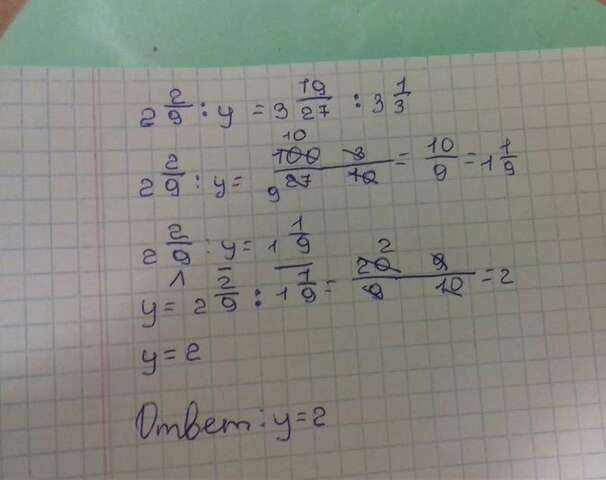 2 2/9 : y = 3 19/27 : 3 1/3
10
2 2/9 : y = 100 3 / 9 27 10 = 10/9 = 1 1/9
2 2/9 : y = 1 1/9
2
y = 2 2/9 : 1 1/9 = 20 9 / 9 10 = 2
y = 2
Ответ: y = 2